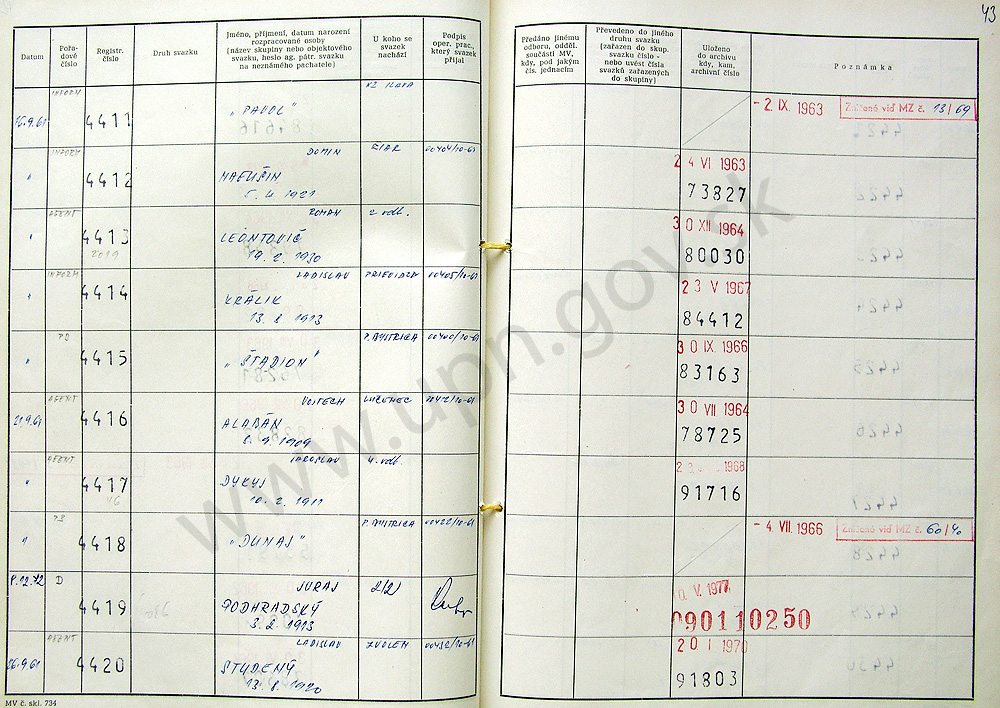 43
Datum
Pořadové číslo
Registr. číslo
Druh svazku
Jméno, příjmení, datum narození rozpracované osoby (název skupiny nebo objektového svazku, heslo ag. pátr. svazku na neznámého pachatele)
U koho se svazek nachází
Podpis oper. prac., který svazek přijal
Předáno jinému odboru, odděl. součásti MV, kdy, pod jakým čís. jednacím
Převedeno do jiného druhu svazku (zařazen do skup. svazku číslo - nebo uvést čísla svazků zařazených do skupiny)
Uloženo do archivu kdy, kam, archivní číslo
Poznámka
INFORM
4411
„PAVOL"
- 2. IX. 1963
Zničeno viď MZ č. 13/69
INFORM
" 4412
DOMIN
MAGUŠIN
00404/10-61
24 VI 1963
73827
AGENT
" 4413
2019
ROMAN
LEONTOVIČ
19. 2. 1930
2. odb.
30 XII 1964
80030
INFORM
" 4414
LADISLAV
KRÁLIK
13. 8. 1913
PRIEVIDZA
00405/10-61
23 V 1967
84412
" 4415
„ŠTADION"
P. BYSTRICA
00400/10-61
30 IX. 1966
83163
21.9.61
AGENT
4416
VOJTECH
ALABÁN
8. 9. 1909
LUČENEC
30 VII 1964
78725
AGENT
" 4417
16
JAROSLAV
DYKYJ
10. 2. 1911
4. odb.
1968
91716
" 4418
„DUNAJ"
P. BYSTRICA
00422/10-61
- 4. VII. 1966
Zničeno viď MZ č. 60/70
8.12.72
D
4419
JURAJ
PODHRADSKÝ
3. 2. 1913
2/2/
0. V. 1977
090110250
26.9.61
AGENT
4420
LADISLAV
STUDENÝ
13. 8. 1920
ZVOLEN
00432/10-61
20 I 1970
91803
MV č. skl. 734
www.upn.gov.sk